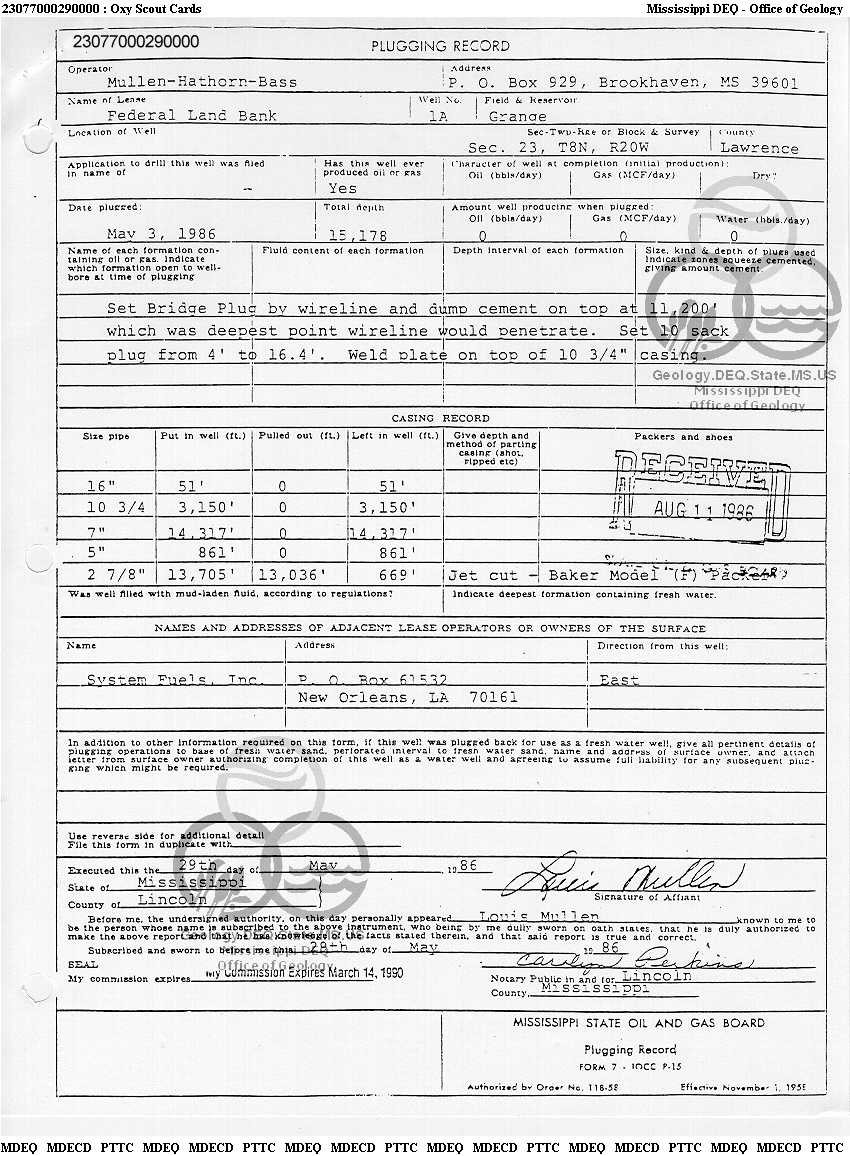 23077000290000 : Oxy Scout Cards Mississippi DEQ - Office of Geology
23077000290000
PLUGGING RECORD
Operator Address
Mullen-Hathorn-Bass P. O. Box 929, Brookhaven, MS 39601
Name of Lease Well No. Field & Reservoir
Federal Land Bank 1A Grange
Location of Well Sec-Twp-Rge or Block & Survey County
Sec. 23, T8N, R20W Lawrence
Application to drill this well was filed Has this well ever Character of well at completion (initial production):
in name of produced oil or gas Oil (bbls/day) Gas (MCF/day) Dry?
- Yes
Date plugged: Total depth Amount well producing when plugged:
Oil (bbls/day) Gas (MCF/day) Water (bbls./day)
May 3, 1986 15,178 0 0 0
Name of each formation con- Fluid content of each formation Depth interval of each formation Size, kind & depth of plugs used
taining oil or gas. Indicate Indicate zones squeeze cemented,
which formation open to well- giving amount cement.
bore at time of plugging
Set Bridge Plug by wireline and dump cement on top at 11,200'
which was deepest point wireline would penetrate. Set 10 sack
plug from 4' to 16.4'. Weld plate on top of 10 3/4" casing.
Geology.DEQ.State.MS.US
Mississippi DEQ
Office of Geology
CASING RECORD
Size pipe Put in well (ft.) Pulled out (ft.) Left in well (ft.) Give depth and Packers and shoes
method of parting
casing (shot,
ripped etc)
RECEIVED
16" 51' 0 51'
10 3/4 3,150' 0 3,150'
AUG 11 1986
7" 14,317' 0 14,317'
5" 861' 0 861'
2 7/8" 13,705' 13,036' 669' Jet cut - Baker Model (F) Packer
Was well filled with mud-laden fluid, according to regulations? Indicate deepest formation containing fresh water.
NAMES AND ADDRESSES OF ADJACENT LEASE OPERATORS OR OWNERS OF THE SURFACE
Name Address Direction from this well:
System Fuels, Inc. P. O. Box 61532 East
New Orleans, LA 70161
In addition to other information required on this form, if this well was plugged back for use as a fresh water well, give all pertinent details of
plugging operations to base of fresh water sand, perforated interval to fresh water sand, name and address of surface owner, and attach
letter from surface owner authorizing completion of this well as a water well and agreeing to assume full liability for any subsequent plug-
ging which might be required.
Use reverse side for additional detail
File this form in duplicate with
Executed this the 29th day of May , 1986
State of Mississippi Louis Mullen
County of Lincoln Signature of Affiant
Before me, the undersigned authority, on this day personally appeared Louis Mullen known to me to
be the person whose name is subscribed to the above instrument, who being by me dully sworn on oath states, that he is duly authorized to
make the above report and that he has knowledge of the facts stated therein, and that said report is true and correct.
Geology.DEQ.State.MS.US
Subscribed and sworn to before me this 29th day of May 1986
Mississippi DEQ
Office of Geology
SEAL Carolyn Perkins
My commission expires My Commission Expires March 14, 1990 Notary Public in and for Lincoln
County, Mississippi
MISSISSIPPI STATE OIL AND GAS BOARD
Plugging Record
FORM 7 - IOCC P-15
Authorized by Order No. 118-58 Effective November 1, 1958
MDEQ MDECD PTTC MDEQ MDECD PTTC MDEQ MDECD PTTC MDEQ MDECD PTTC MDEQ MDECD PTTC MDEQ MDECD PTTC